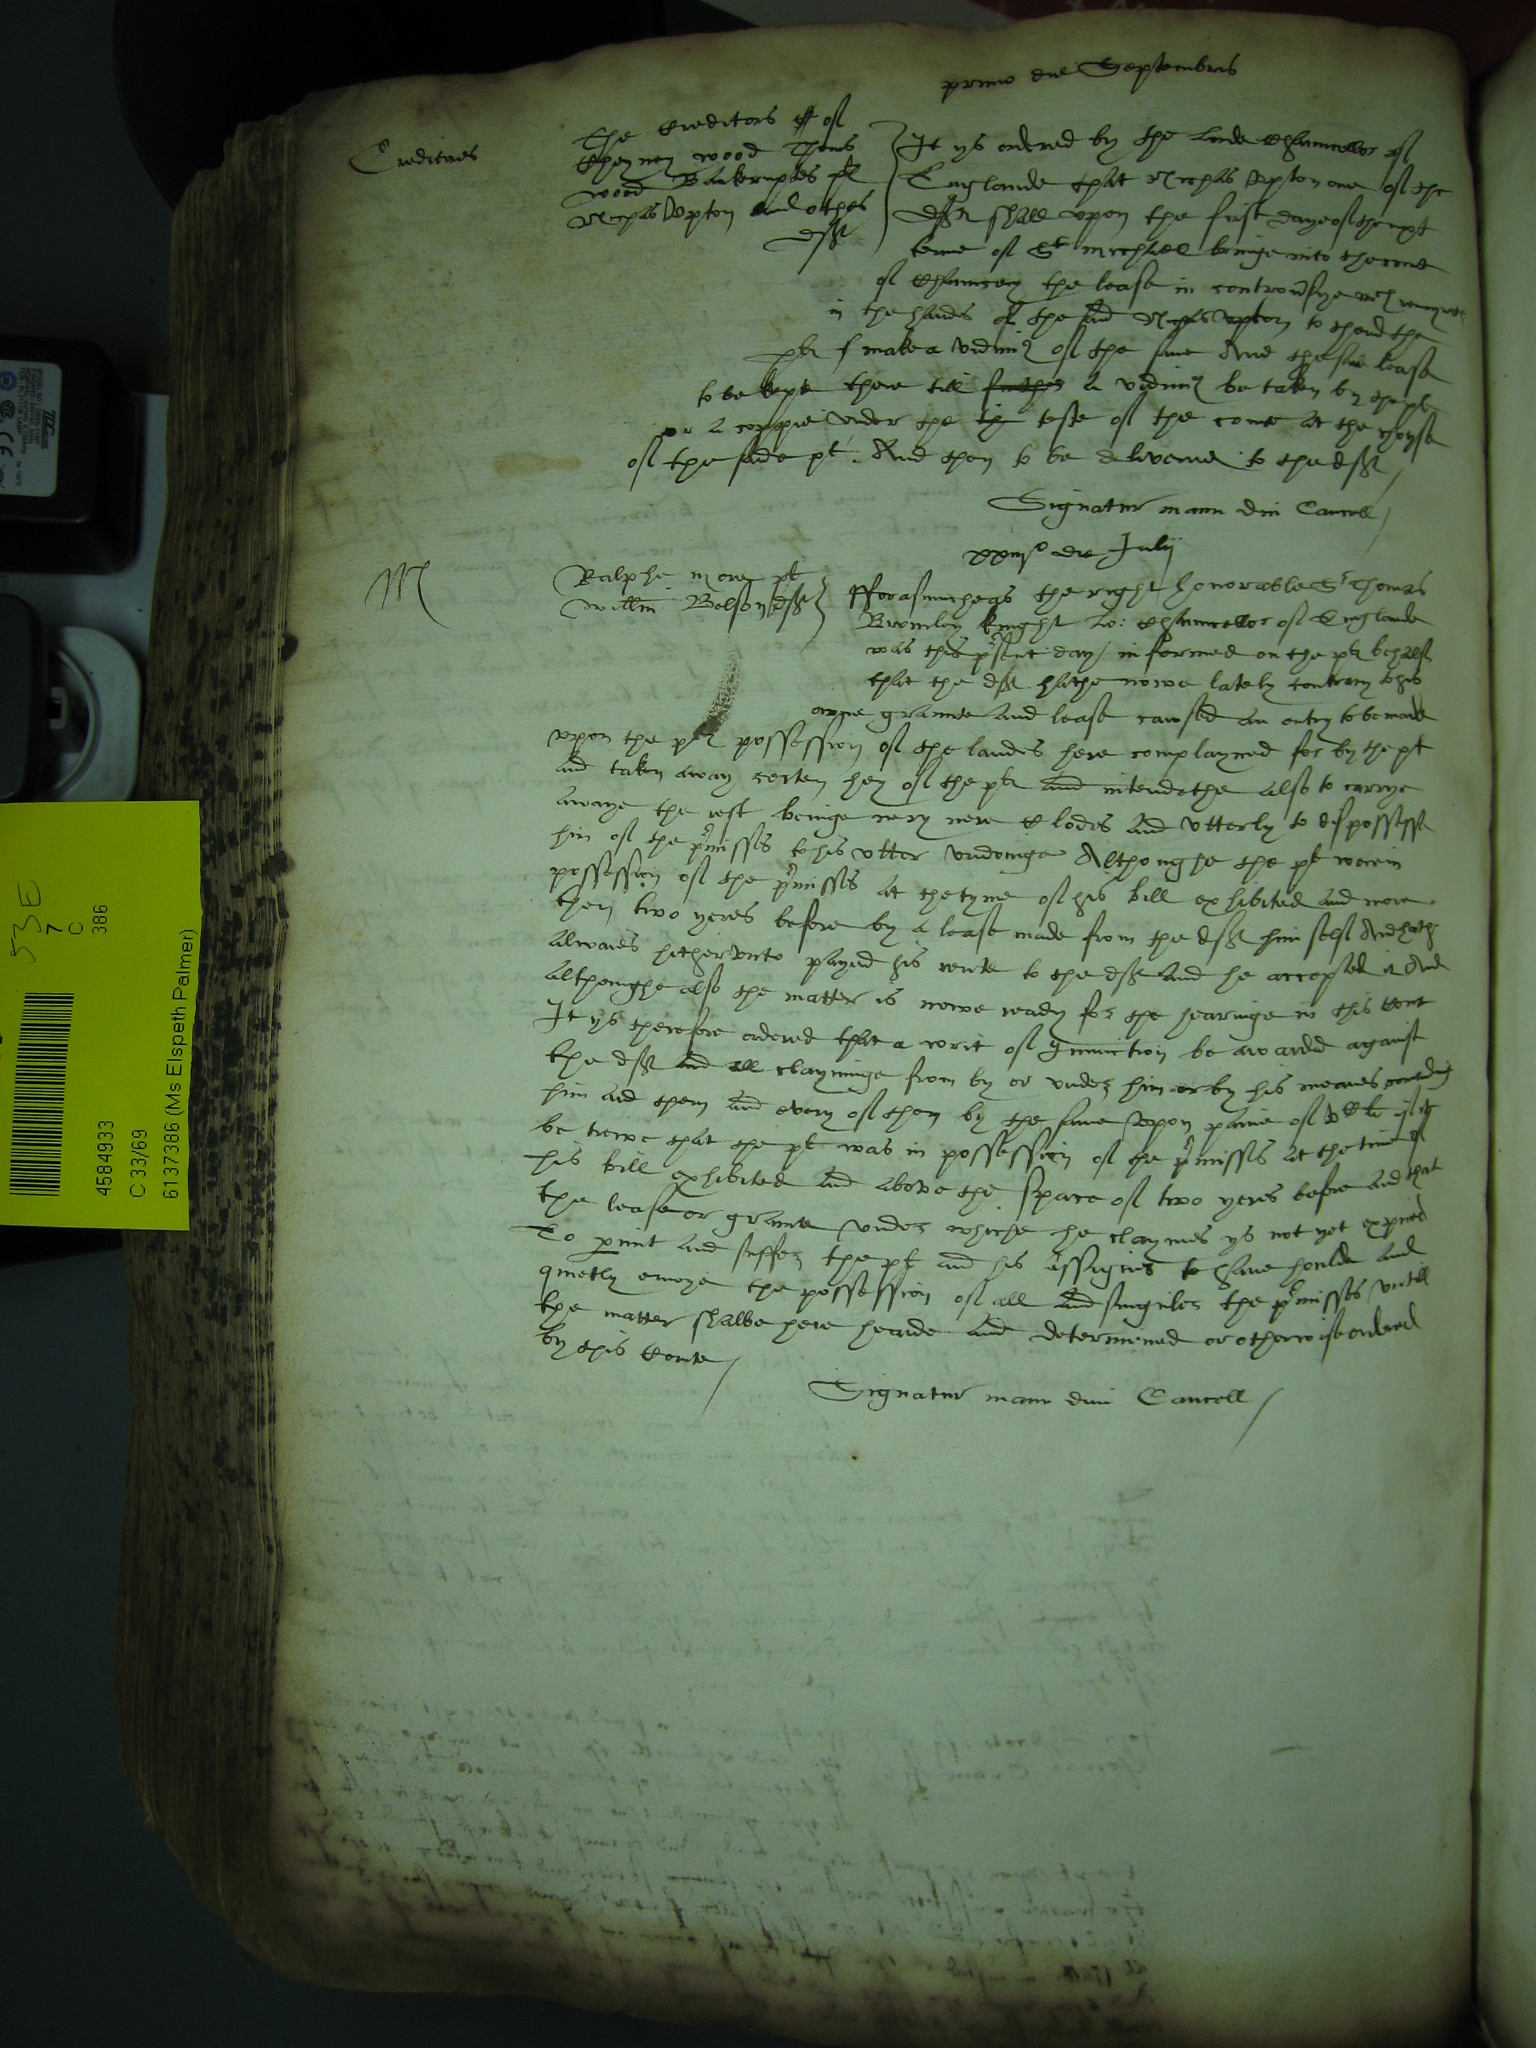 primo die Septembris
Creditores
The Creditors of
wood Thom's
wood Bankerupts pl
Nichas Upton and others
deft
It ys ordered by the Lorde Chauncellor of
Englande that Nichas Upton one of the
deftes shall upon the first daye of the next
terme of St Michaell bringe into the corte
of Chauncery the lease in controversye
in the handes of the said Nichas Upton to thend the
plt make a vidimus of the same And the same lease
to be kepte there till further a vidimus be taken by the plt
or a coppie under the teste of the corte at the choyse
of the saide plt. And then to be delivered to the deft
Signatur manu Dni Cancell
die Julij
M
Ralphe More plt
Willm Belson deft
Fforasmuche as the right honorable Sr Thomas
Bromley knight Lo: Chauncellor of Englande
was this present day informed on the plts behalfe
that the deft hathe nowe lately contrary to his
owne graunte and lease cawsed an entry to be made
upon the plts possession of the landes here complayned for by the plt
and taken away certen hey of the plts and intendethe also to carrye
awaye the rest beinge very nere lodes and utterly to dispossesse
him of the premisses to his utter undoinge Althoughe the plt were in
possession of the premisses at the tyme of his bill exhibited and more
then two yeres before by a lease made from the deft him self And hath
alwaies hitherunto payed his rente to the deft and he accepted it And
althoughe also the matter is nowe ready for the hearinge in this Cort
It ys therefore ordered that a writ of Iniunction be awarded against
the deft and all clayminge from by or under him or by his meanes
him and them and every of them by the same upon paine of if it
be trewe that the plt was in possession of the premisses at the time of
his bill exhibited and above the space of two yeres before and that
the lease or graunte under whiche he claymes ys not yet expired
To permit and suffer the plt and his assignes to have houlde and
quietly enioye the possession of all and singuler the premisses untill
the matter shalbe here hearde and determined or otherwise ordered
by this Corte
Signatur manu Dni Cancell
53E
7
C
386
4584933
C 33/69
6137386 (Ms Elspeth Palmer)